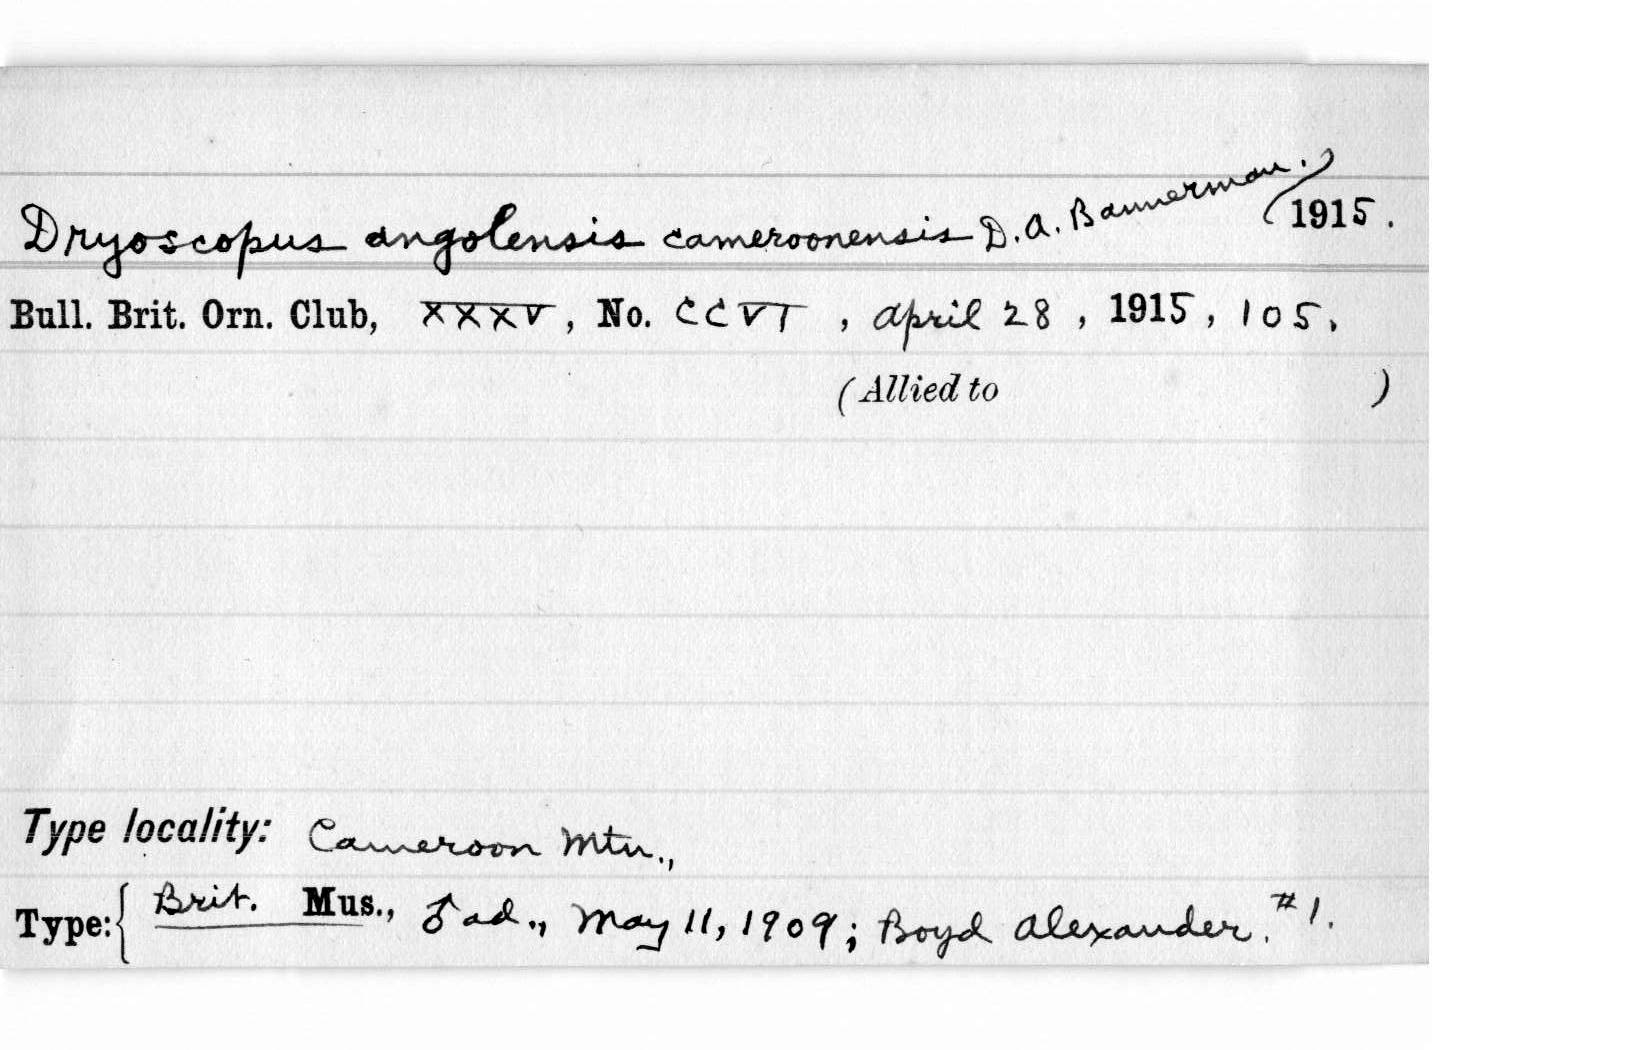 Dryoscopus angolensis cameroonensis D. A. Bannerman. 1915.
Bull. Brit. Orn. Club, XXXV, No. CCVI, April 28, 1915, 105.
(Allied to )
Type locality: Cameroon Mtn.,
Type: { Brit. Mus., ♂ ad., May 11, 1909; Boyd Alexander. #1.